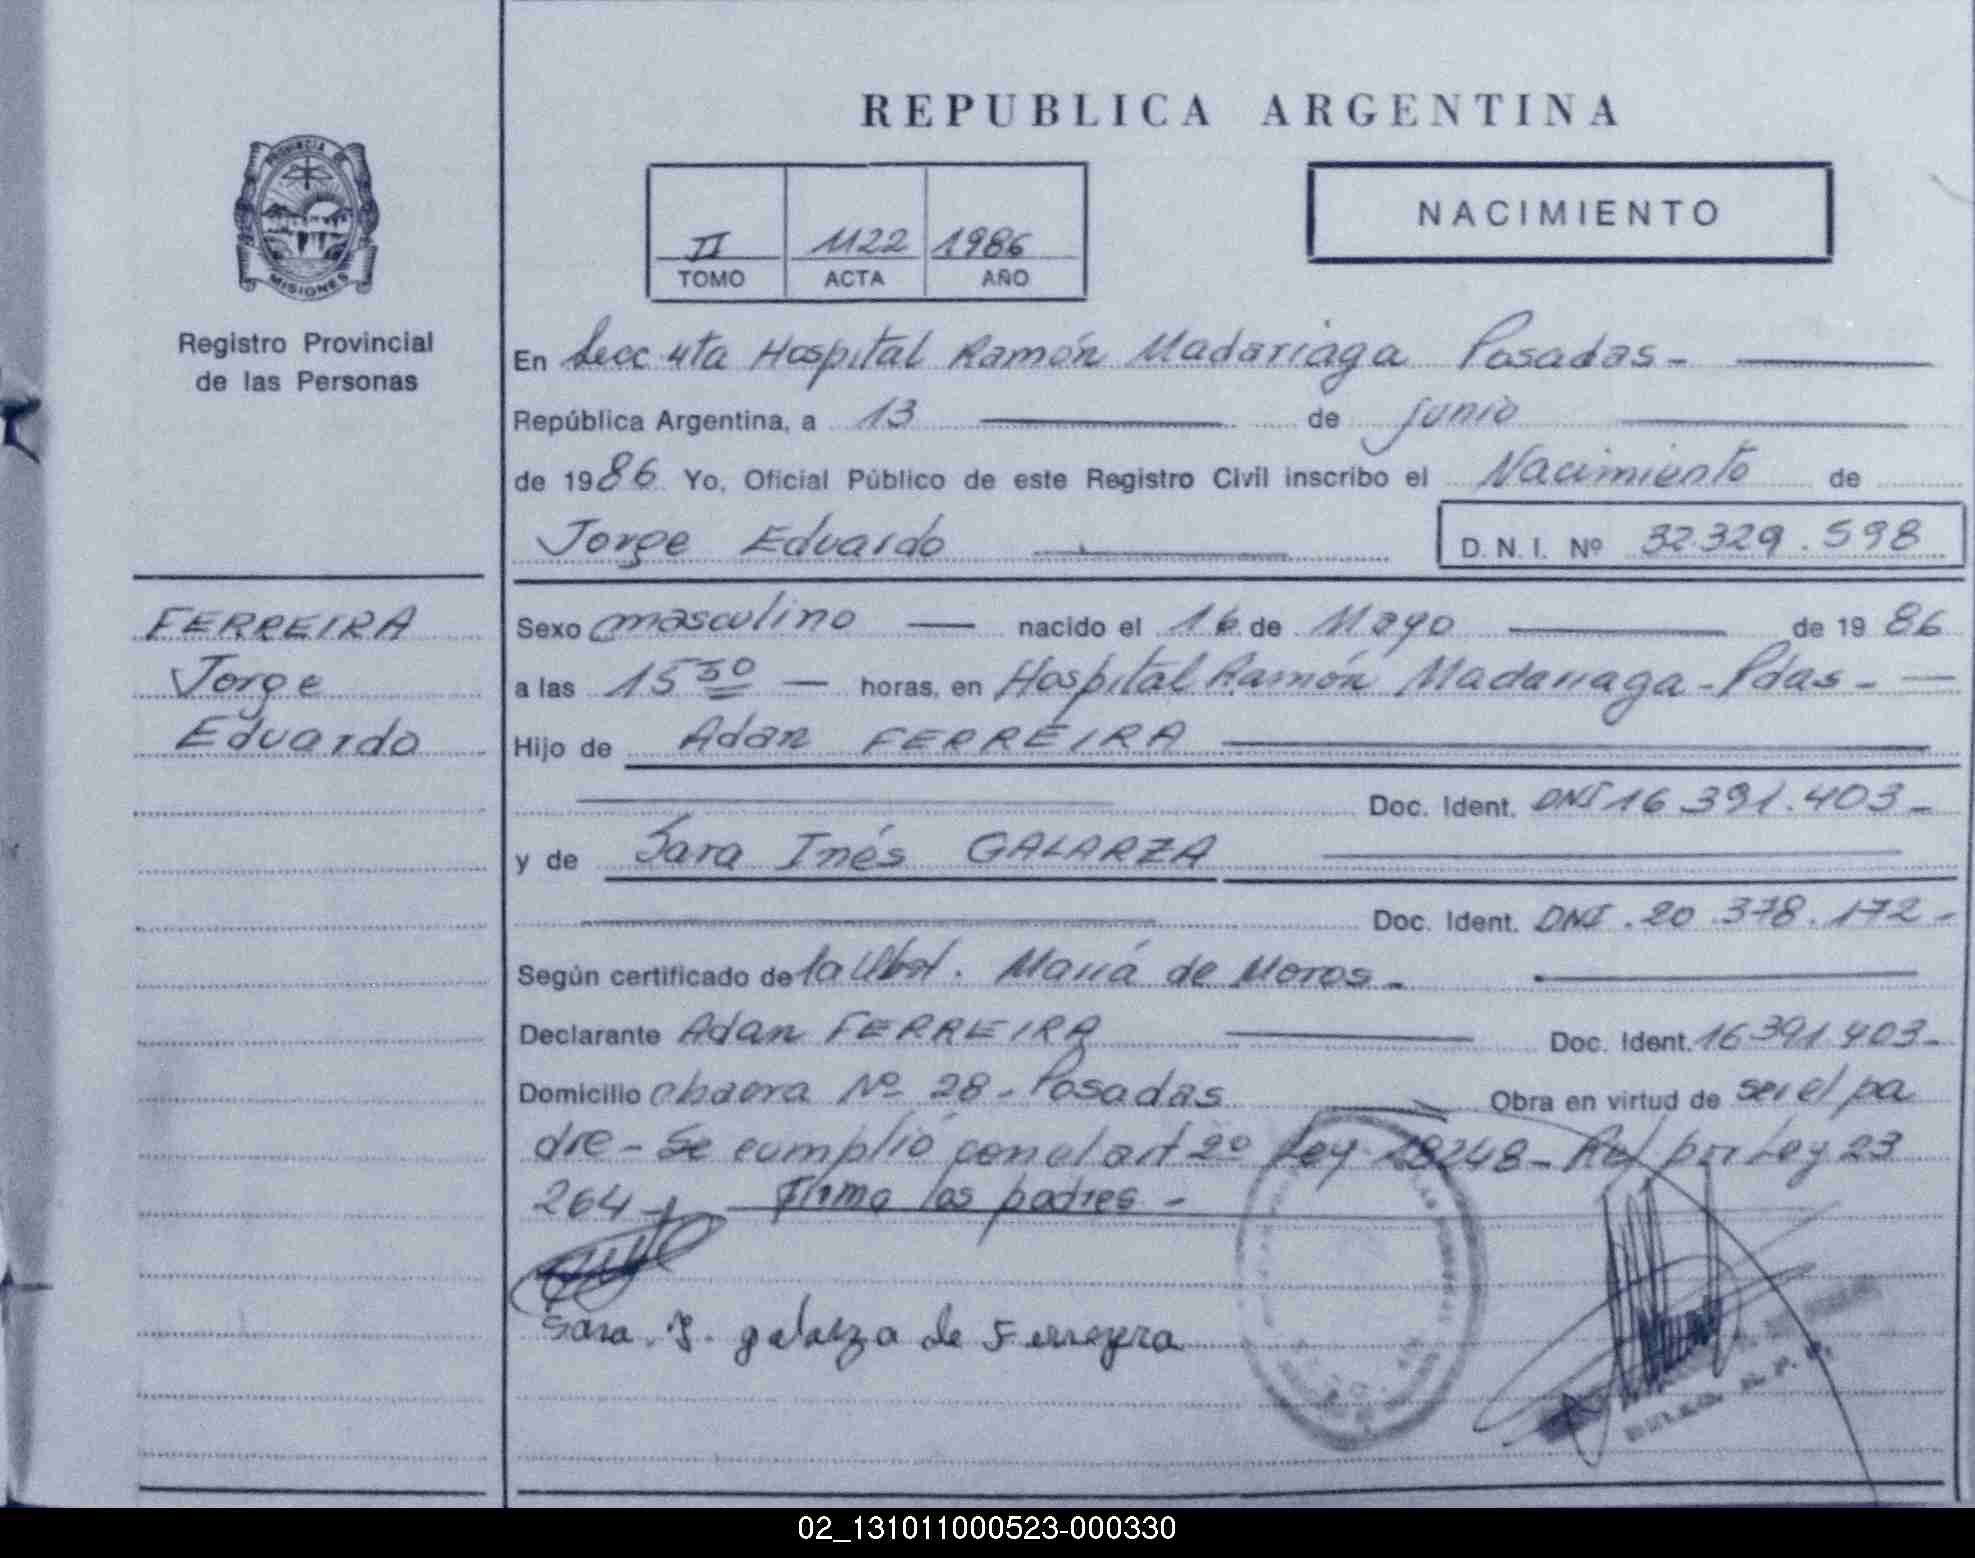 PROVINCIA DE
MISIONES
Registro Provincial
de las Personas
FERREIRA
Jorge
Eduardo
REPUBLICA ARGENTINA
II 1122 1986
TOMO ACTA AÑO
NACIMIENTO
En Secc 4ta Hospital Ramón Madariaga Posadas -
República Argentina, a 13 de junio
de 1986 Yo, Oficial Público de este Registro Civil inscribo el Nacimiento de
Jorge Eduardo D.N.I. Nº 32.329.598
Sexo masculino nacido el 16 de Mayo de 1986
a las 15 30 horas, en Hospital Ramón Madariaga - Pdas -
Hijo de Adan FERREIRA
Doc. Ident. DNI 16.391.403 -
y de Sara Inés GALARZA
Doc. Ident. DNI. 20.378.172 -
Según certificado de la Obst. María de Moros -
Declarante Adan FERREIRA Doc. Ident. 16391403 -
Domicilio Nº 28 - Posadas Obra en virtud de ser el pa
dre - Se cumplió con el art 2º Ley 18248 - Ref por Ley 23
264 - Firma los padres -
Sara. I. galarza de Ferreyra
02_131011000523-000330